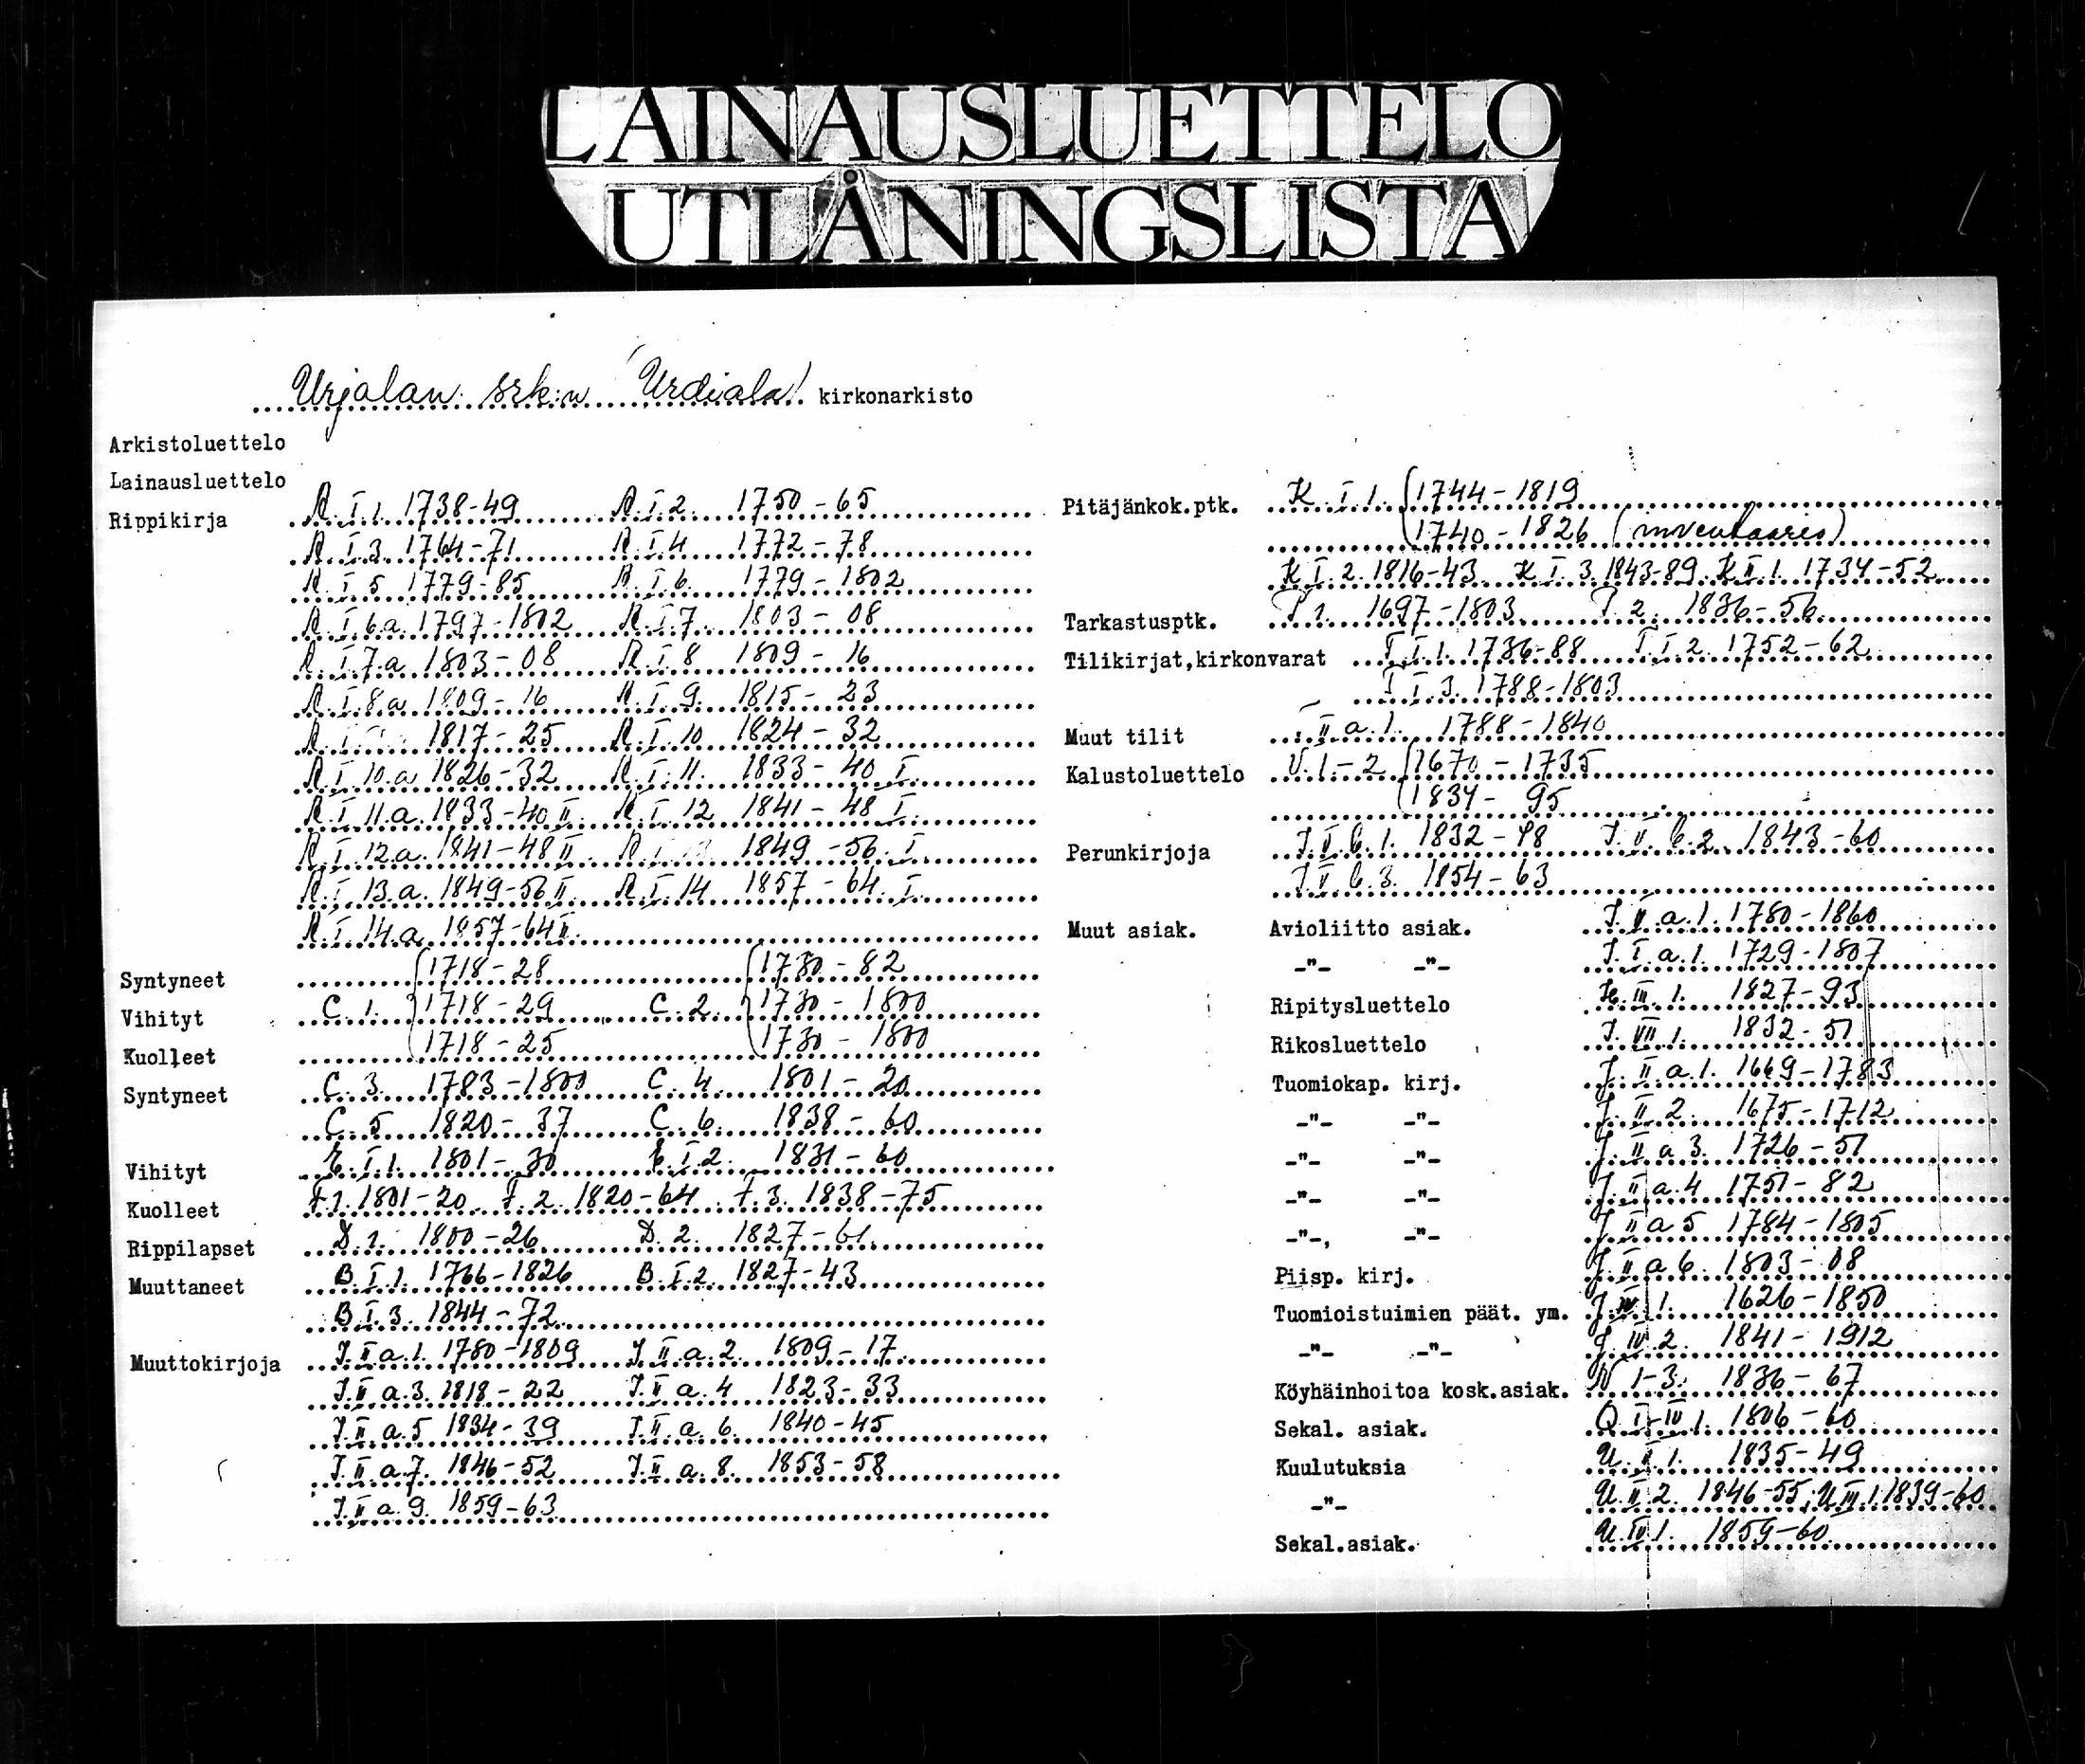 LAINAUSLUETTELO
UTLÅNINGSLISTA
Urjalan srk:n (Urdiala) kirkonarkisto
Arkistoluettelo
Lainausluettelo
Rippikirja R.I.1. 1738-49 R.I.2. 1750-65
R.I.3. 1764-71 R.I.4 1772-78
R.I.5 1779-85 R.I.6. 1779-1802
R.I.6.a. 1797-1802 R.I.7. 1803-08
R.I.7.a 1803-08 R.I.8 1809-16
R.I.8.a 1809-16 R.I.9. 1815-23
R.I. 1817-25 R.I.10 1824-32
R.I.10.a 1826-32 R.I.11. 1833-40 I.
R.I.11.a. 1833-40 II. R.I.12 1841-48 I.
R.I.12.a. 1841-48 II. R.I. 1849-56. I.
R.I.13.a. 1849-56 II. R.I.14 1857-64. I.
R.I.14.a. 1857-64 II.
Syntyneet 1718-28 1730-82
Vihityt C.1. 1718-29 C.2. 1730-1800
Kuolleet 1718-25 1730-1800
Syntyneet C.3. 1783-1800 C.4. 1801-20
C.5 1820-37 C.6. 1838-60
Vihityt E.I.1. 1801-30 E.I.2. 1831-60
Kuolleet F.1. 1801-20. F.2. 1820-64 F.3. 1838-75
Rippilapset D.1. 1800-26 D.2. 1827-61.
Muuttaneet B.I.1. 1766-1826 B.I.2. 1827-43
B.I.3. 1844-72
Muuttokirjoja J.II.a.1. 1780-1809 J.II.a.2. 1809-17.
J.II.a.3. 1818-22 J.II.a.4 1823-33
J.II.a.5 1834-39 J.II.a.6. 1840-45
J.II.a.7. 1846-52 J.II.a.8. 1853-58
J.II.a.9. 1859-63
Pitäjänkok.ptk. K.I.1. 1744-1819
1740-1826 (inventaario)
K.I.2. 1816-43. K.I.3. 1843-89. K.II.1. 1734-52
Tarkastusptk. P.1. 1697-1803. P.2. 1836-56
Tilikirjat,kirkonvarat T.I.1. 1736-88 T.I.2. 1752-62
T.I.3. 1788-1803
Muut tilit II.a.1. 1788-1840
Kalustoluettelo V.1.-2 1670-1735
1834-95
Perunkirjoja J.V.b.1. 1832-48 J.V.b.2. 1843-60
J.V.b.3. 1854-63
Muut asiak. Avioliitto asiak. J.V.a.1. 1780-1860
-"- -"- J.I.a.1. 1729-1807
Ripitysluettelo H.III.1. 1827-93
Rikosluettelo J.VII.1. 1832-51
Tuomiokap. kirj. J.II.a.1. 1669-1783
-"- -"- J.II.2. 1675-1712
-"- -"- J.II.a.3. 1726-51
-"- -"- J.II.a.4 1751-82
-"-, -"- J.II.a.5 1784-1805
Piisp. kirj. J.II.a.6. 1803-08
Tuomioistuimien päät. ym. J.IV.1. 1626-1850
-"- -"- J.IV.2. 1841-1912
Köyhäinhoitoa kosk.asiak. N 1-3. 1836-67
Sekal. asiak. Q.I-IV 1. 1806-60
Kuulutuksia U.I.1. 1835-49
-"- U.II.2. 1846-55; U.III.1. 1839-60
Sekal.asiak. U.IV.1. 1859-60